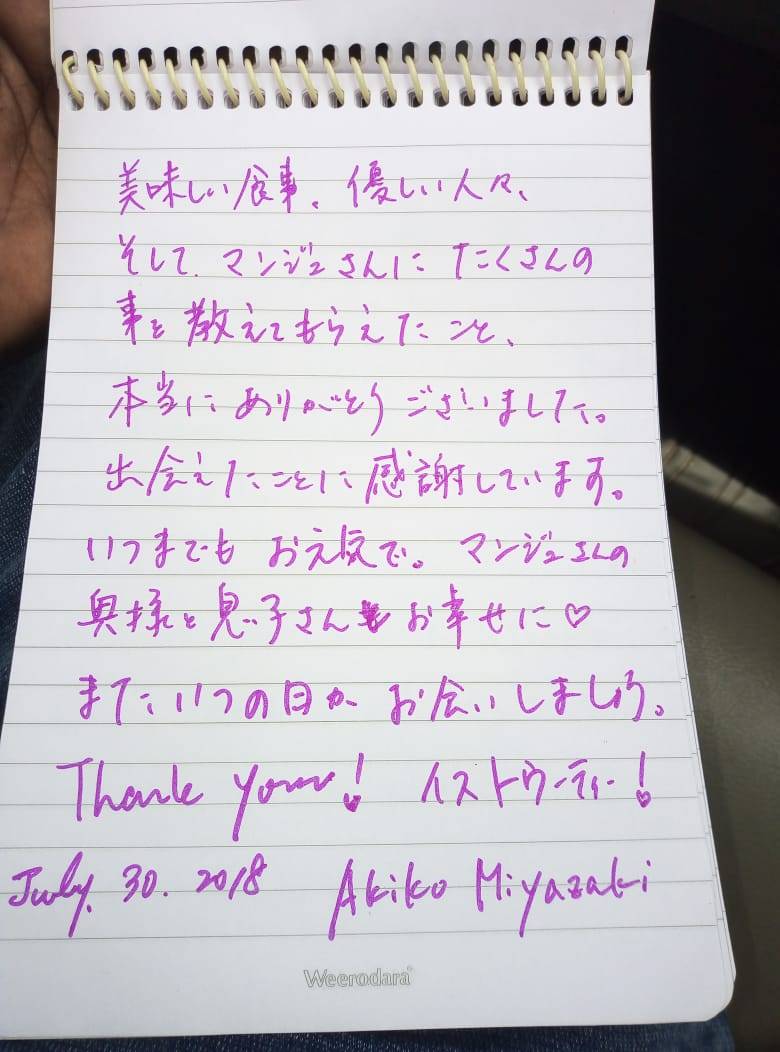 美味しい食事、優しい人々、
そして、マンジュさんに たくさんの
事を教えてもらえたこと、
本当に ありがとう ございました。
出会えたことに感謝しています。
いつまでも お元気で。マンジュさんの
奥様と息子さんも お幸せに♡
またいつの日か お会いしましょう。
Thank you! イストゥーティー!
July. 30. 2018 Akiko Miyazaki
Weerodara